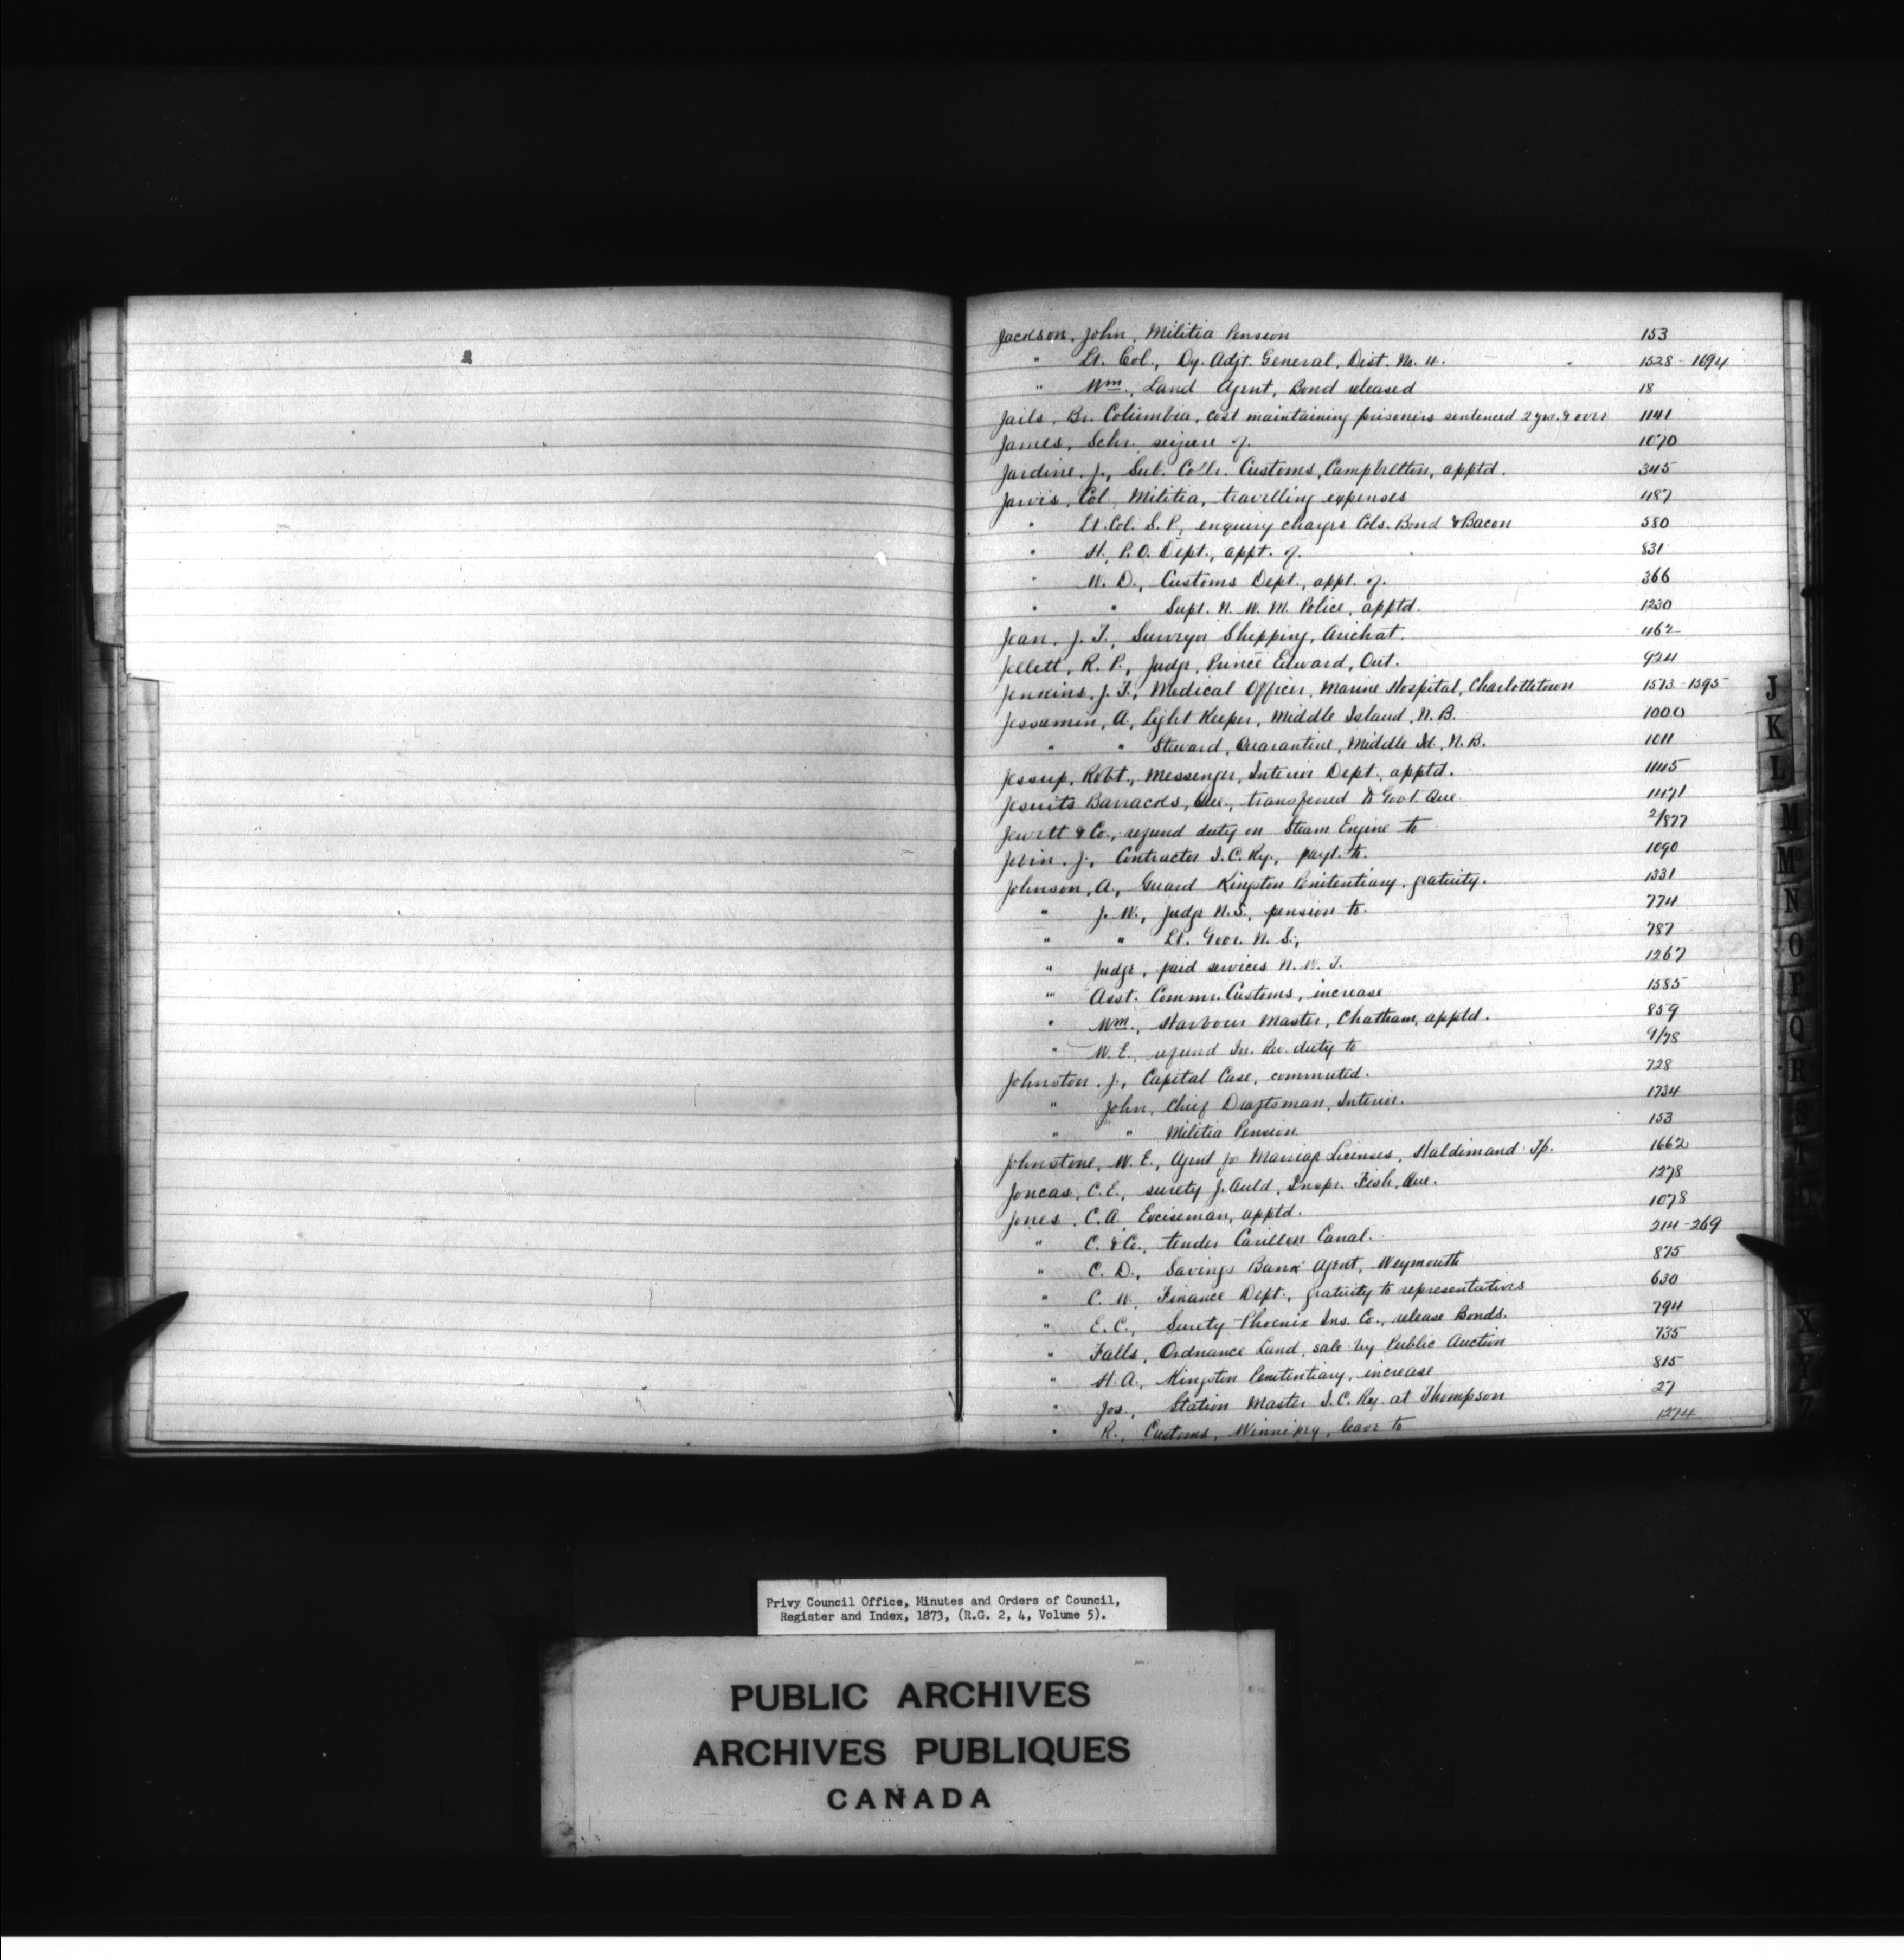 Jackson, John, Militia Pension 153
" Lt. Col., Dy. Adjt. General, Dist. No. 4. 1528-1694
" Wm, Land Agent, Bond released 18
Jails, Br. Columbia, cost maintaining prisoners sentenced 2 yrs. & over 1141
James, Schr. seizure of. 1070
Jardine, J., Sub. Collr. Customs, Campbellton, apptd. 345
Jarvis, Col. Militia, travelling expenses 487
" Lt. Col. S. P., enquiry charges Cols. Bond & Bacon 580
" H. P.O. Dept., appt. of. 831
" W. D., Customs Dept., appt. of. 366
" " Supt. N. W. M. Police, apptd. 1230
Jean, J. T., Surveyor Shipping, Arichat. 462
Jellett, R. P., Judge, Prince Edward, Ont. 924
Jenkins, J. T., Medical Officer, Marine Hospital, Charlottetown 1573-1595
Jessamin, A., Light Keeper, Middle Island, N.B. 1000
" " Steward, Quarantine, Middle Id., N.B. 1011
Jessup, Robt., Messenger, Interior Dept., apptd. 1145
Jesuits Barracks, Que., transferred to Govt. Que. 1171
Jewett & Co., refund duty on Steam Engine to 2/877
Jobin, J., Contractor I.C. Ry., payt. to. 1090
Johnson, A., Guard Kingston Penitentiary, gratuity. 1331
" J. W., Judge N.S., pension to. 774
" " Lt. Govr. N. S., 787
" Judge, paid services N. W. T. 1267
" Asst. Commr. Customs, increase 1585
" Wm., Harbour Master, Chatham, apptd. 859
" W. E., refund In. Rev. duty to 9/78
Johnston, J., Capital Case, commuted. 728
" John, Chief Draftsman, Interior. 1734
" " Militia Pension 153
Johnstone, W. E., Agent for Marriage Licenses, Haldimand Tp. 1662
Joncas, C.E., surety J. Auld, Inspr. Fish, Que. 1278
Jones, C.A. Exciseman, apptd. 1078
" C. & Co., tender Carillon Canal. 214-269
" C. D., Savings Bank Agent, Weymouth 875
" C. W. Finance Dept., gratuity to representatives 630
" E. C., Surety Phoenix Ins. Co., release Bonds. 794
" Falls, Ordnance Land, sale by Public Auction 735
" H. A., Kingston Penitentiary, increase 815
" Jos., Station Master I.C. Ry. at Thompson 27
" R., Customs, Winnipeg, leave to 1274
J
K
L
M
Mc
N
O
P
Q
R
S
T
X
Y
Z
Privy Council Office, Minutes and Orders of Council,
Register and Index, 1873, (R.G. 2, 4, Volume 5).
PUBLIC ARCHIVES
ARCHIVES PUBLIQUES
CANADA